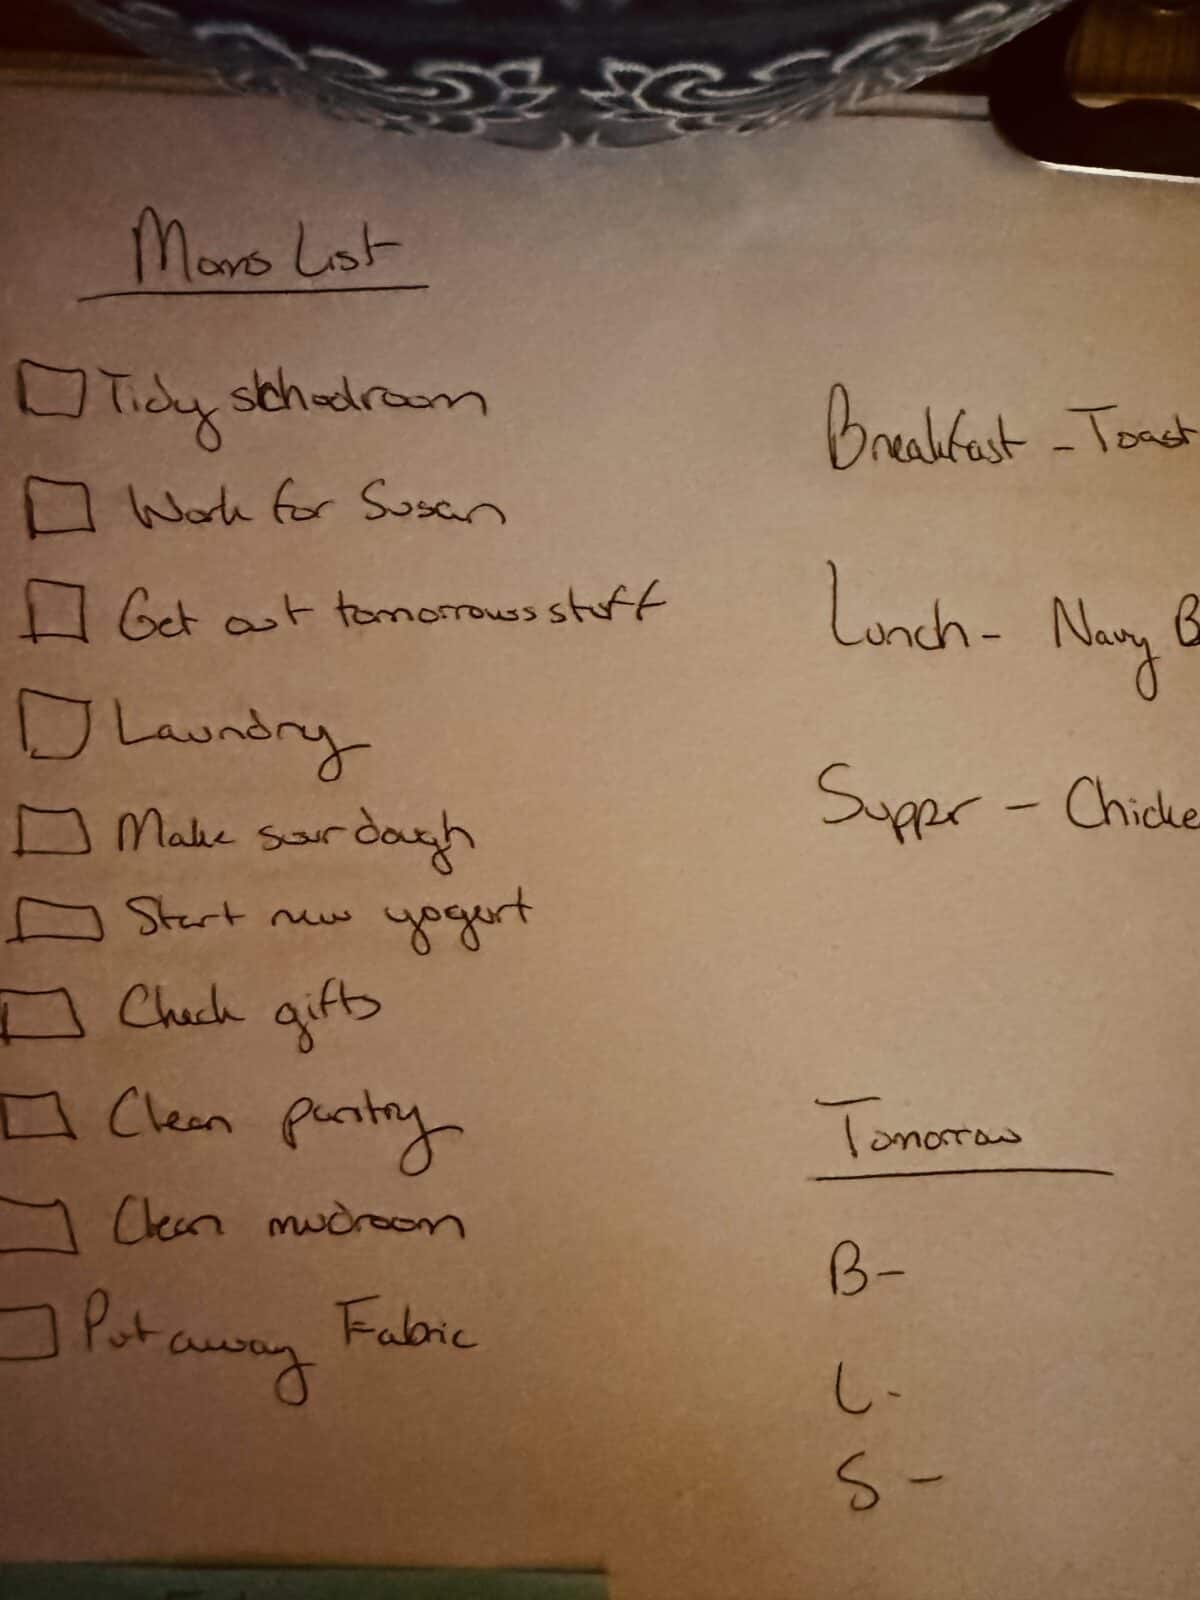 Moms List
Tidy schoolroom
Work for Susan
Get out tomorrows stuff
Laundry
Make sourdough
Start new yogurt
Check gifts
Clean pantry
Clean mudroom
Put away Fabric
Breakfast - Toast
Lunch - Navy B
Supper - Chicke
Tomorrow
B-
L-
S-